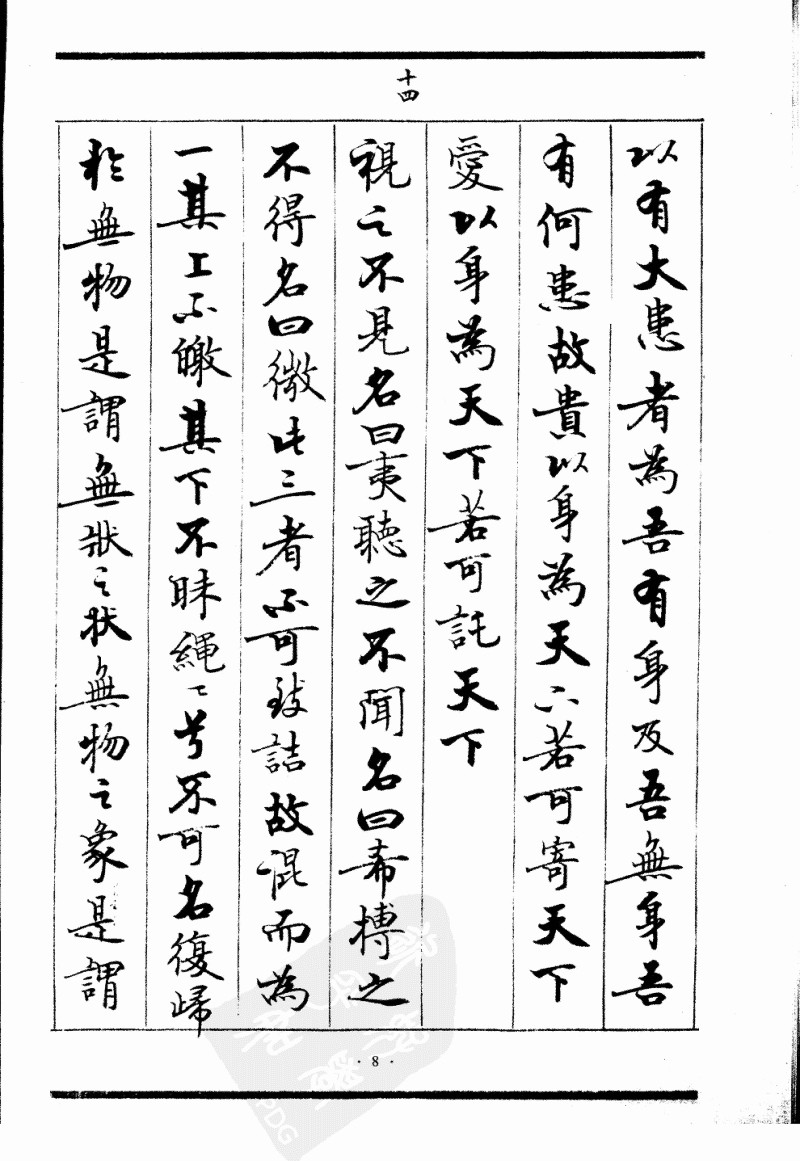 十四
以有大患者為吾有身及吾無身吾
有何患故貴以身為天下若可寄天下
愛以身為天下若可託天下
視之不見名曰夷聽之不聞名曰希搏之
不得名曰微此三者不可致詰故混而為
一其上不皦其下不昧繩〻兮不可名復歸
於無物是謂無狀之狀無物之象是謂
· 8 ·
PDG